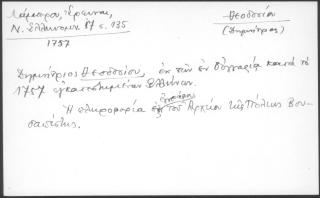 Λάμπρου, Έρευναι,
Ν. Ελληνομν. 17 σ. 135
1757
Θεοδοσίου
(Δημήτριος)
Δημήτριος Θεοδοσίου, εκ των εν Ουγγαρία κατά το
1757 εγκατεστημένων Ελλήνων.
Η πληροφορία εκ του Αρχείου της Πόλεως Βου-
δαπέστης.